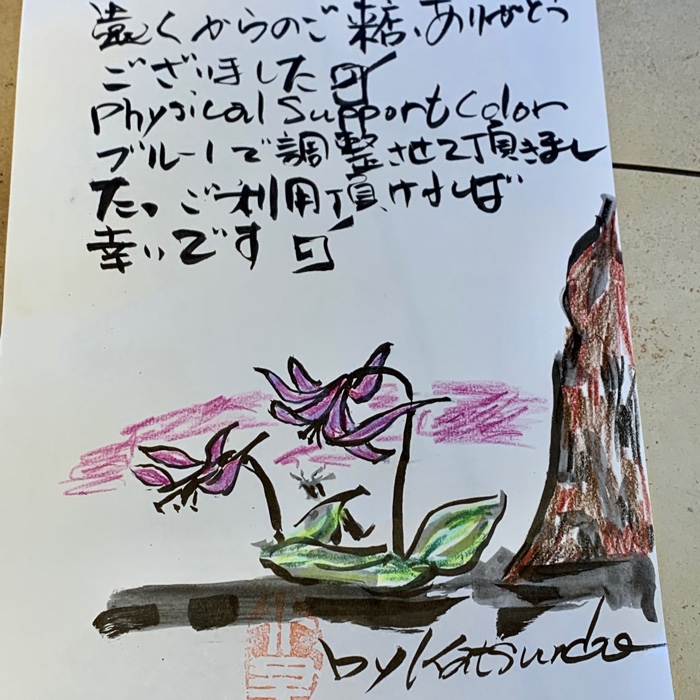 遠くからのご来店、ありがとう
ございました
Physical Support Color
ブルーIで調整させて頂きまし
た。ご利用頂ければ
幸いです
by Katsundo